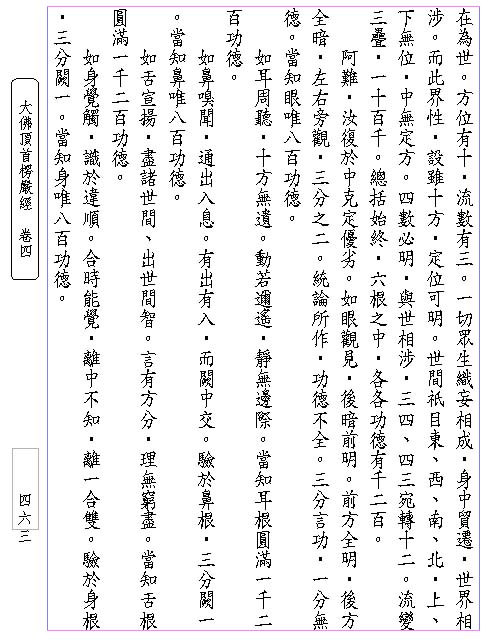 在為世。方位有十，流數有三。一切眾生織妄相成，身中貿遷，世界相
涉。而此界性，設雖十方，定位可明。世間祇目東、西、南、北，上、
下無位，中無定方。四數必明，與世相涉，三四、四三宛轉十二。流變
三疊，一十百千。總括始終，六根之中，各各功德有千二百。
阿難，汝復於中克定優劣。如眼觀見，後暗前明。前方全明，後方
全暗，左右旁觀，三分之二。統論所作，功德不全。三分言功，一分無
德。當知眼唯八百功德。
如耳周聽，十方無遺。動若邇遙，靜無邊際。當知耳根圓滿一千二
百功德。
如鼻嗅聞，通出入息。有出有入，而闕中交。驗於鼻根，三分闕一
。當知鼻唯八百功德。
如舌宣揚，盡諸世間、出世間智。言有方分，理無窮盡。當知舌根
圓滿一千二百功德。
如身覺觸，識於違順。合時能覺，離中不知，離一合雙。驗於身根
，三分闕一。當知身唯八百功德。
大佛頂首楞嚴經　卷四
四六三